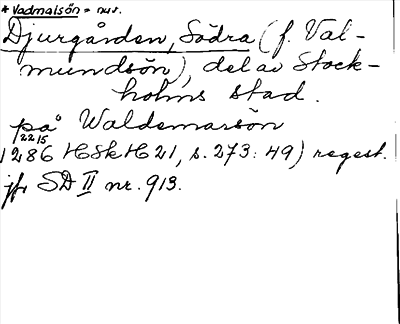 * Vadmalsön = nuv.
Djurgården, Södra (f. Val-
mundsön), del av Stock-
holms stad.
på Waldemarsön
22/5
1286 HSkH 21, s. 273: 49) regest.
jfr SD II nr. 913.